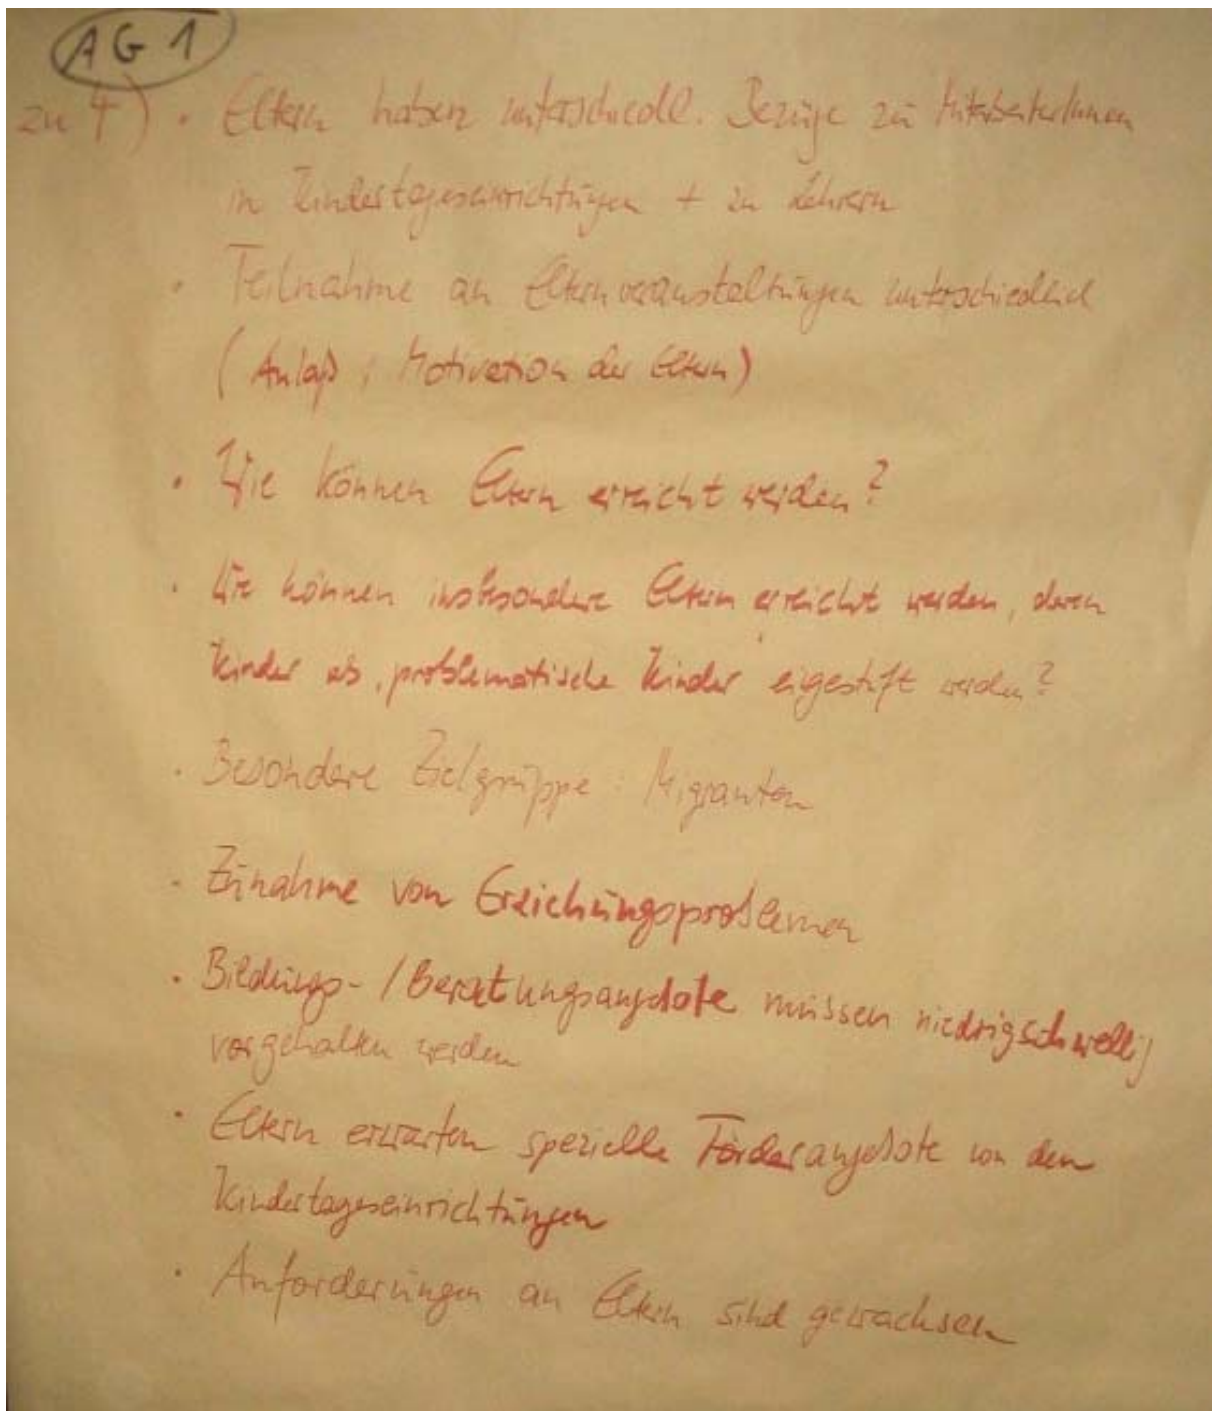 AG 1
zu 4) • Eltern haben unterschiedl. Bezüge zu MitarbeiterInnen
in Kindertageseinrichtungen + zu Lehrern
• Teilnahme an Elternveranstaltungen unterschiedlich
(Anlaß, Motivation der Eltern)
• Wie können Eltern erreicht werden?
• Wie können insbesondere Eltern erreicht werden, deren
Kinder als "problematische Kinder" eigestuft werden?
• Besondere Zielgruppe: Migranten
• Zunahme von Erziehungsproblemen
• Bildungs-/Beratungsangebote müssen niedrigschwellig
vorgehalten werden
• Eltern erwarten spezielle Förderangebote von den
Kindertageseinrichtungen
• Anforderungen an Eltern sind gewachsen